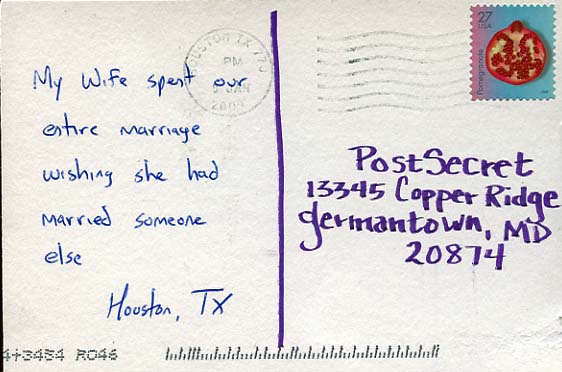 27
USA
Pomegranate
HOUSTON TX 770
PM
JAN
My Wife spent our
entire marriage
wishing she had
married someone
else
Houston, TX
PostSecret
13345 Copper Ridge
Germantown, MD
20874
4+3454 R046